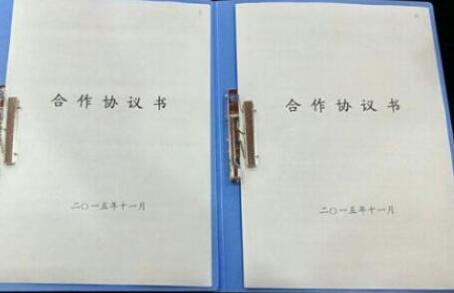 合作协议书
二〇一五年十一月
合作协议书
二〇一五年十一月